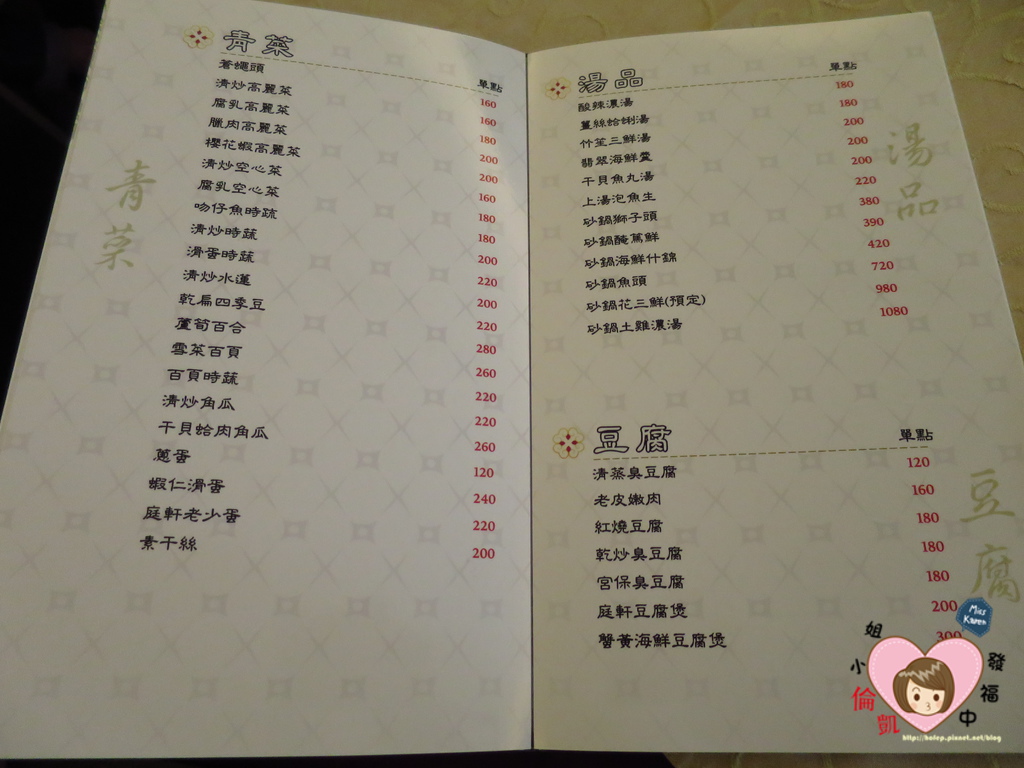 青菜 單點
蒼蠅頭 160
清炒高麗菜 160
腐乳高麗菜 180
臘肉高麗菜 200
櫻花蝦高麗菜 200
清炒空心菜 160
腐乳空心菜 180
吻仔魚時蔬 180
清炒時蔬 200
滑蛋時蔬 220
清炒水蓮 200
乾扁四季豆 220
蘆筍百合 280
雪菜百頁 260
百頁時蔬 220
清炒角瓜 220
干貝蛤肉角瓜 260
蔥蛋 120
蝦仁滑蛋 240
庭軒老少蛋 220
素干絲 200
青菜
湯品 單點
酸辣濃湯 180
薑絲蛤蜊湯 180
竹笙三鮮湯 200
翡翠海鮮羹 200
干貝魚丸湯 200
上湯泡魚生 220
砂鍋獅子頭 380
砂鍋醃篤鮮 390
砂鍋海鮮什錦 420
砂鍋魚頭 720
砂鍋花三鮮(預定) 980
砂鍋土雞濃湯 1080
湯品
豆腐 單點
清蒸臭豆腐 120
老皮嫩肉 160
紅燒豆腐 180
乾炒臭豆腐 180
宮保臭豆腐 180
庭軒豆腐煲 200
蟹黃海鮮豆腐煲 300
豆腐
Miss Karen
凱倫小姐發福中
http://hofep.pixnet.net/blog